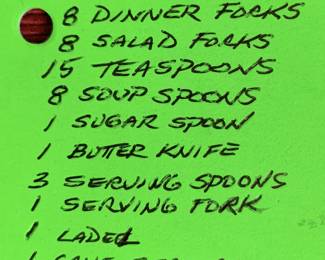 8 DINNER FORKS
8 SALAD FORKS
15 TEASPOONS
8 SOUP SPOONS
1 SUGAR SPOON
1 BUTTER KNIFE
3 SERVING SPOONS
1 SERVING FORK
1 LADEL
1